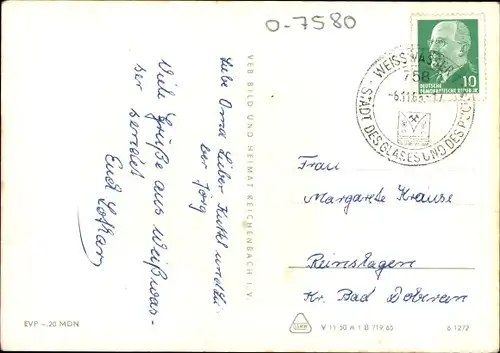 O-7580
WEISSWASSER
758
-6.11.65.-17
STADT DES GLASES UND DES
DEUTSCHE
DEMOKRATISCHE REPUBLIK
10
Liebe Oma Lieber Kuttel und Lie-
ber Jörg
Viele Grüße aus Weißwas-
ser sendet
Euch Lothar
VEB BILD UND HEIMAT REICHENBACH I. V.
Frau
Margarete Krause
Reinshagen
Kr. Bad Doberan
EVP –.20 MDN
V 11 50 A 1 B 719/65
6.1272